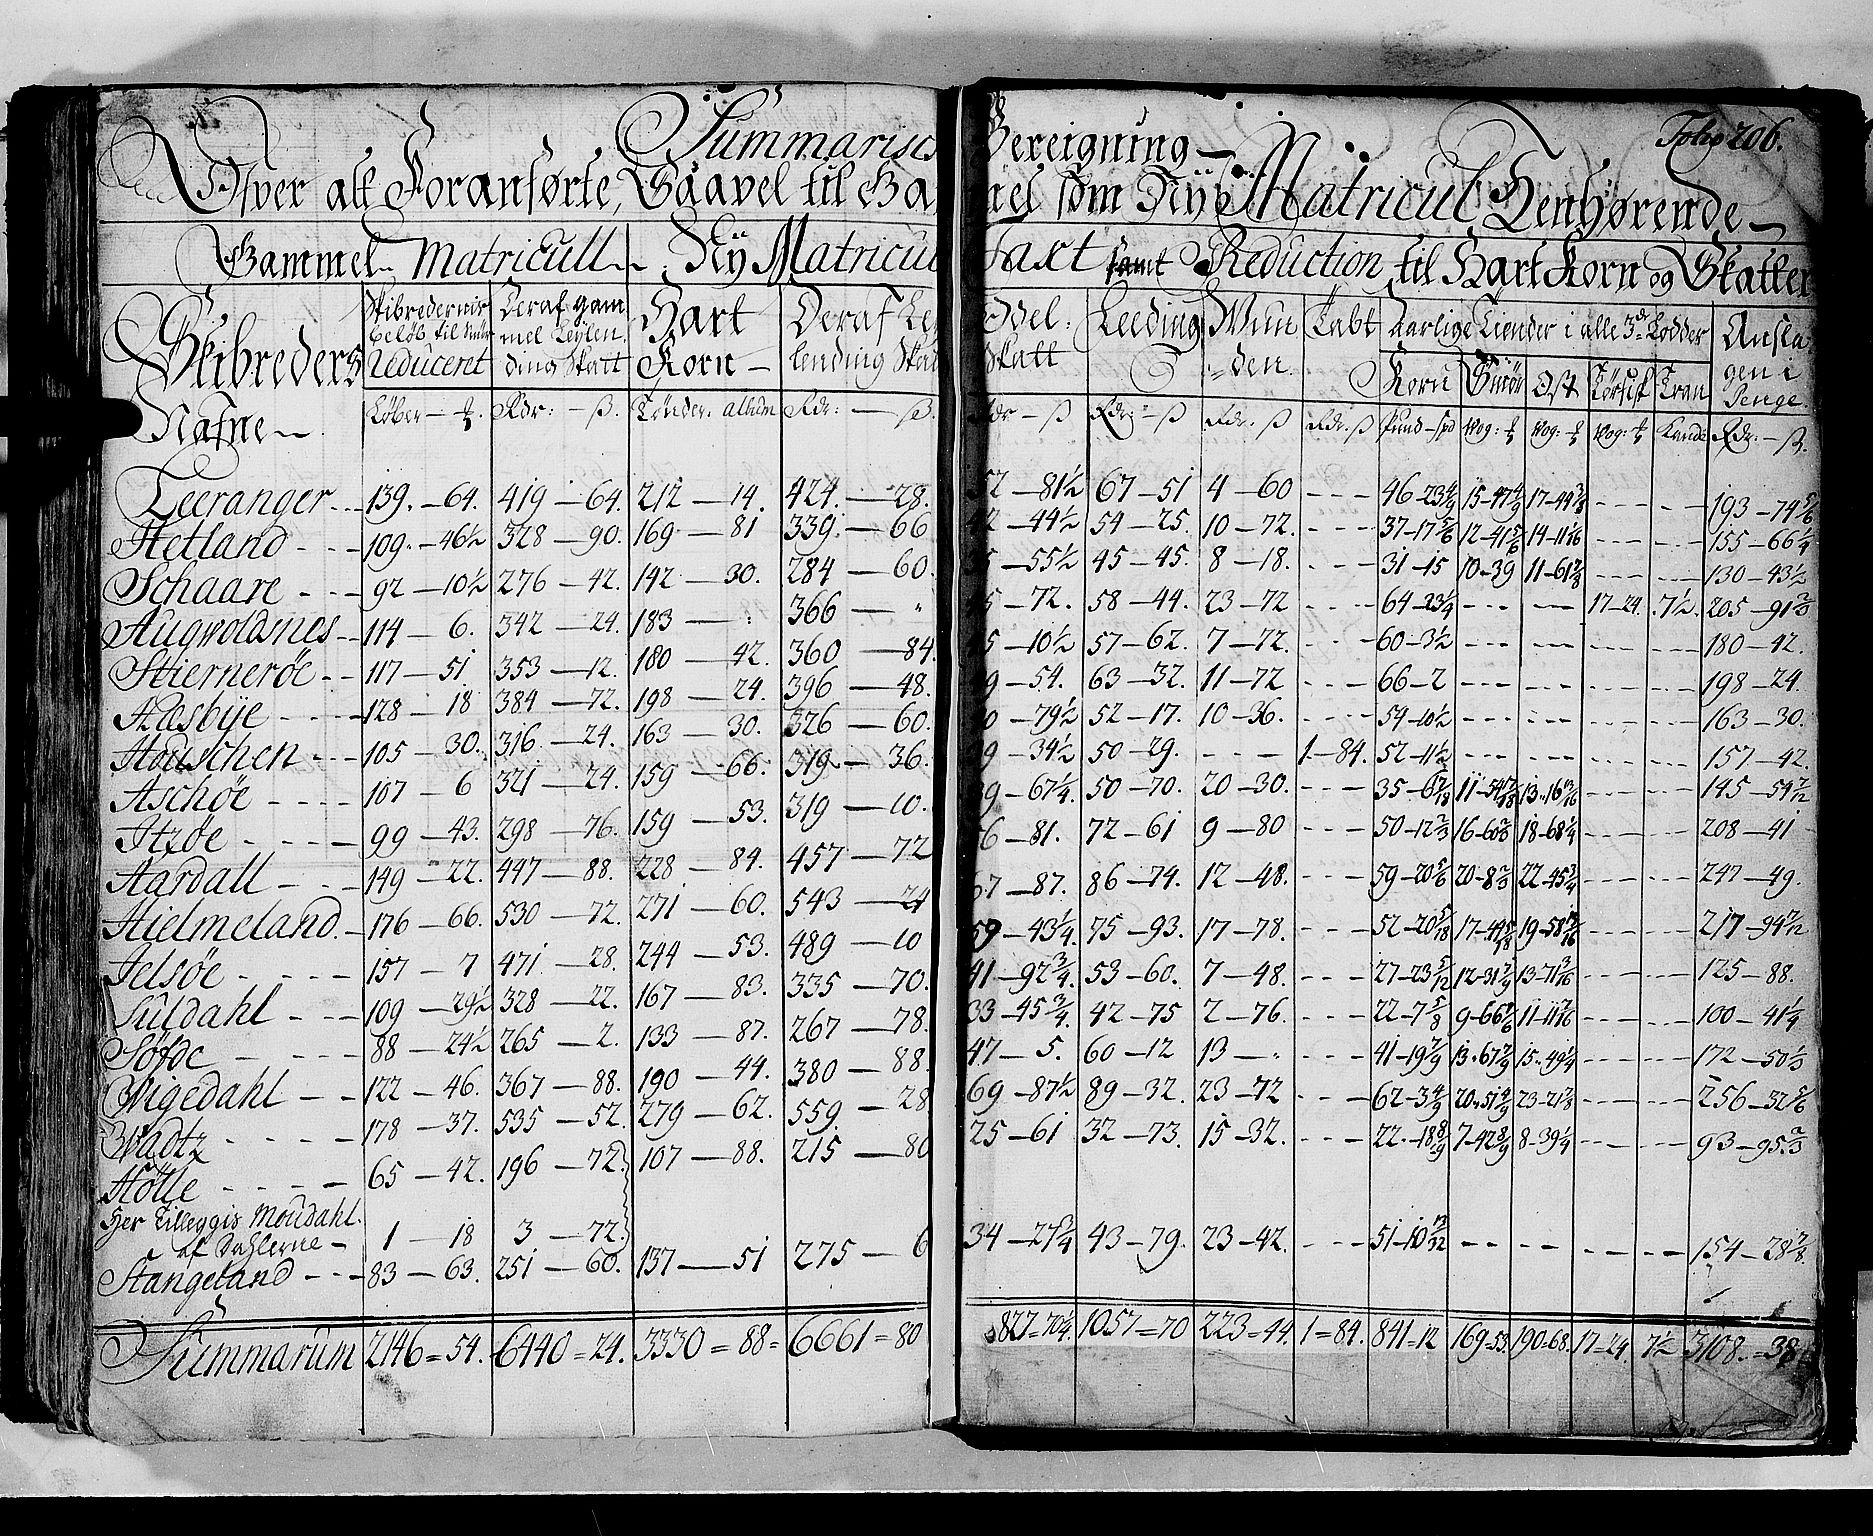 Folio 206.
Summarisc Bereigning
Ofver alt Foranførte, Saavel til Ga mel som Nÿe Matricul Henhørende
Gammel Matricull Nÿ Matricul Taxt samt Reduction til Hart Korn og Skatter
Skibreders Nafne
Skibredernis beløb til Smør reduceret
Deraf gammel Leylending Skatt
Hart Korn
Deraf Leylending Skat
Odel Skatt
Leeding
Aarlige Tiender i alle 3de Lodder
Korn Smör Ost Tørfisk Tran
Anslagen i Penge
Løber Rdr: ß. Tønder. album Rdr: ß.
Rdr ß Rdr: ß Rdr. ß Rdr. ß Pund spd Vog: Vog: Vog: Kande Rdr. ß.
Leeranger 139. 64. 419 64. 212 14. 424. 28. 52 81½ 67 51 4 60 --- 46-23 4/9 15-47 4/9 17-44 3/8 --- --- 193-74 5/6
Hetland 109. 46½ 328 90. 169 81 339. 66 42 44½ 54 25. 10 72. --- 37-17 5/6 12-41 5/6 14-11 1/16 --- --- 155-66¼
Schaare 92 10½ 276 42. 142 30. 284 60. 35 55½ 45 45. 8 18. --- 31-15 10-39 11-61 7/8 --- --- 130-43½
Augvoldsnes 114 6. 342 24. 183 " 366 " 45 72. 58 44. 23 72 --- 64-23¼ --- --- 17-24. 7½. 205-91 2/3
Stiernerøe 117 51. 353 12. 180 42. 360 84. 45 10½ 57 62. 7 72. --- 60-3½ --- --- --- --- 180-42.
Hæsbÿe 128 18 384 72. 198 24. 396 48. 49 54. 63 32. 11 72 --- 66-2 --- --- --- --- 198-24.
Houschen 105 30. 316 24. 163 30. 326 60. 40 79½ 52 17. 10 36. --- 54-10½ --- --- --- --- 163-30.
Aschøe 107 6 321 24. 159 66. 319 36. 39 34½ 50 29. --- 1-84. 52-11½ --- --- --- --- 157-42.
Itzøe 99 43. 298 76. 159 53. 319 10. 39 67¼. 50 70. 20 30. --- --- --- 145-54 7/12
Aardall 149 22. 447 88. 228 84. 457 72 56 81. 72 61 9 80 --- 50-12 2/3 16-60 2/3 18-68¼ --- --- 208-41
Hielmeland 176 66. 530 72. 271 60. 543 24 67 87. 86 74. 12 48. --- 59-20 5/6 20-8 2/3 22-45¾ --- --- 247-49.
Jelsøe 157 7 471 28. 244 53. 489 10 59 43¼ 75 93. 17 78. --- --- --- 217-94 7/12
Suldahl 109 29½ 328 22. 167 83. 335 70. 41 92¾ 53 60. 7 48. --- 27-23 5/12 12-31 7/9 13-71 3/16 --- --- 125-88.
Søfde 88 24½ 265 2. 133 87. 267 78. 33 45¾. 42 75 2 76. --- 22-7 5/8 --- --- 100-41¼
Wigedahl 122 46. 367 88. 190 44. 380 88. 47 5. 60 12 13 " --- 41-19 7/9 13-67 7/9 15-49¼ --- --- 172-50 1/3
Wadtz 178 37. 535 52. 279 62. 559 28 69 87½ 89 32. 23 72 --- 62-3 4/9 20-51 4/9 23-21 7/8 --- --- 256-32 5/6
Hølle 65 42. 196 72. 107 88. 215 80 25 61 32 73. 15 32. --- 22-18 8/9 7-42 8/9 8-39¼ --- --- 93-95 2/3
Her Tilleggis Moudahl.
af Dahlerne 1 18 3 72.
Stangeland 83 63. 251 60. 137 51 275 6 34 27¾ 43 79. 23 42. --- 51-10 13/32 --- --- --- --- 154-28 7/8.
Summarum 2146=54. 6440=24. 3330=88= 6661=80 827=70¼. 1057=70 223=44. 1=84. 841=12 169=53. 190=68. 17=24. 7½ 3108.=38